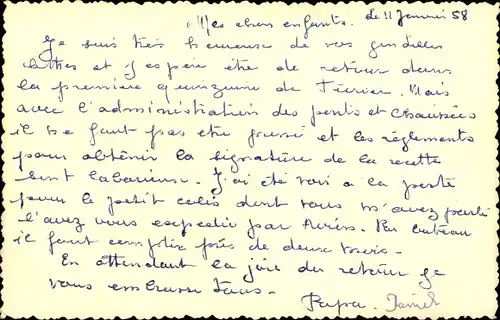 Mes chers enfants. le 11 Janvier 58
Je suis très heureuse de vos gentilles
lettres et j'espère être de retour dans
la première quinzaine de Février. Mais
avec l'administration des ponts et chaussées
il ne faut pas etre pressé et les règlements
pour obtenir la signature de la recette
sont laborieux. J'ai été voir a la poste
pour le petit colis dont vous m'avez parlé
l'avez vous expedié par Avion. Par bateau
il faut compter près de deux mois.
En attendant la joie du retour je
vous embrasse tous.
Papa. Daniel